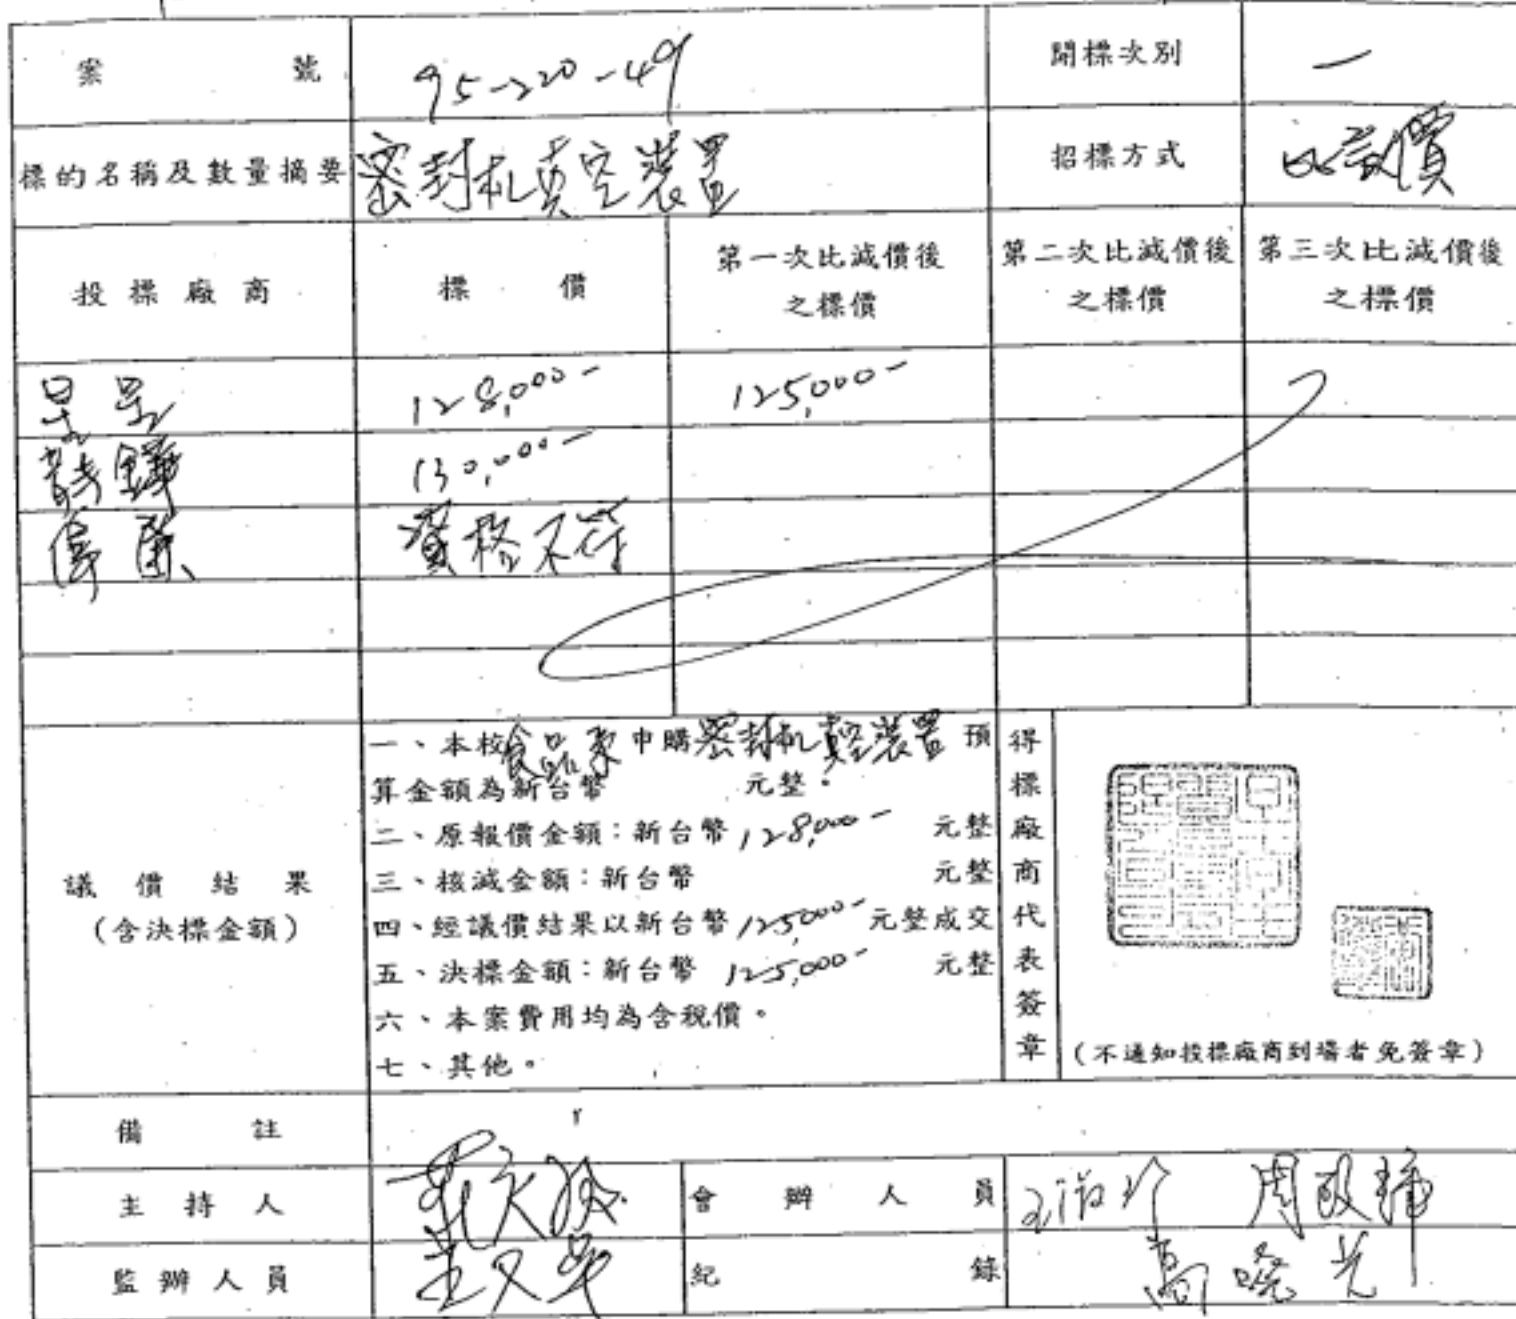 案 號 95-220-49 開標次別 一
標的名稱及數量摘要 密封机真空裝置 招標方式 比議價
投標廠商 標價 第一次比減價後之標價 第二次比減價後之標價 第三次比減價後之標價
128,000- 125,000-
130,000-
資格不符
議價結果
(含決標金額)
一、本校食品系申購密封机真空裝置預
算金額為新台幣 元整。
二、原報價金額:新台幣128,000- 元整
三、核減金額:新台幣 元整
四、經議價結果以新台幣125,000-元整成交
五、決標金額:新台幣 125,000- 元整
六、本案費用均為含稅價。
七、其他。
得標廠商代表簽章
(不通知投標廠商到場者免簽章)
備註
主持人 會辦人員
監辦人員 紀錄